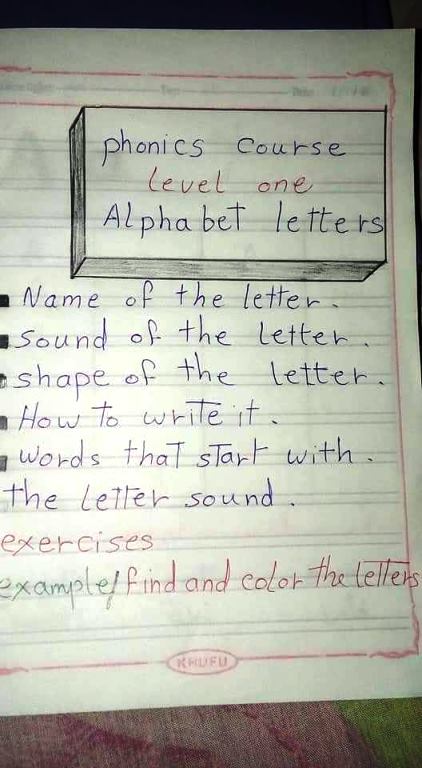 phonics course
level one
Alphabet letters
Name of the letter.
sound of the letter.
shape of the letter.
How to write it.
words that start with.
the letter sound.
exercises
example/ find and color the letters
KHUFU